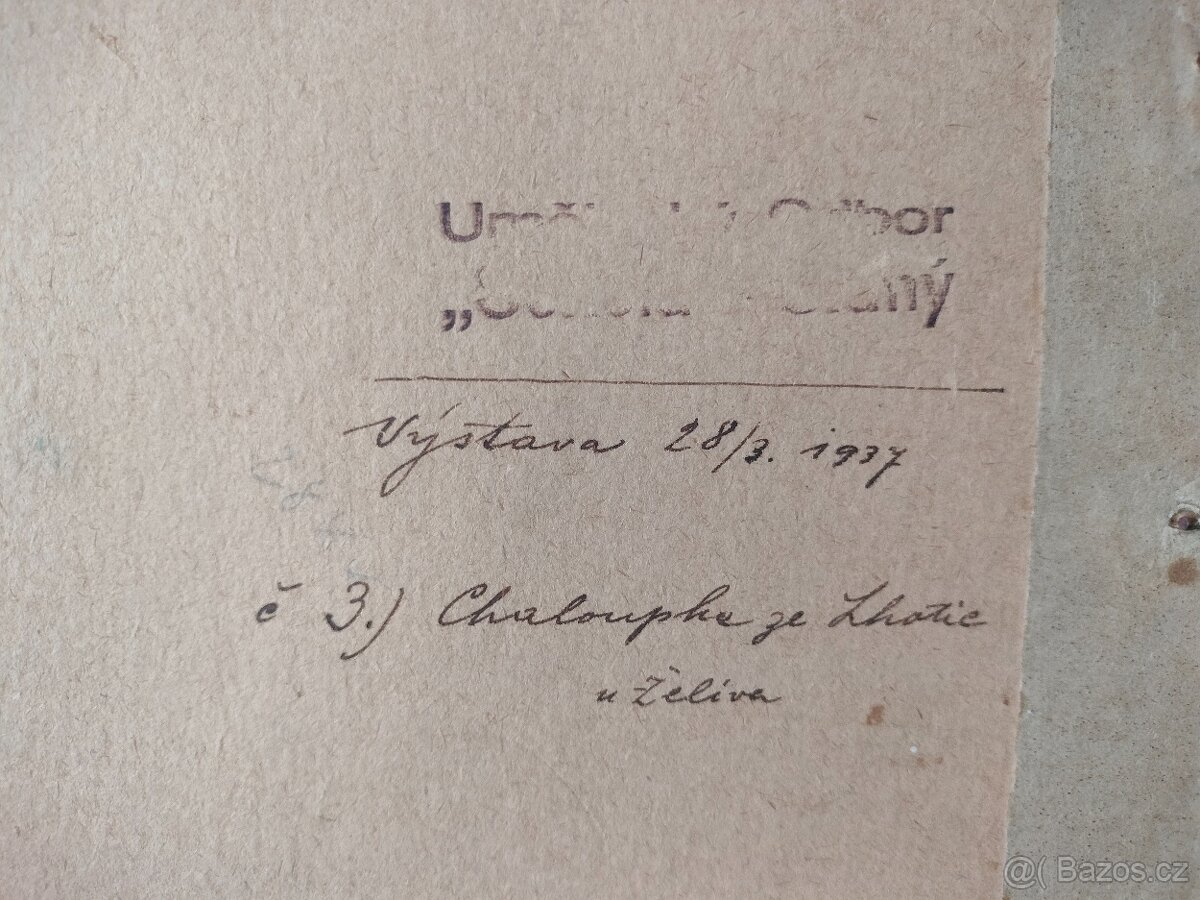 Odbor
Výstava 28/3. 1937
č 3.) Chaloupka ze Lhotic
u Želiva
@( Bazos.cz